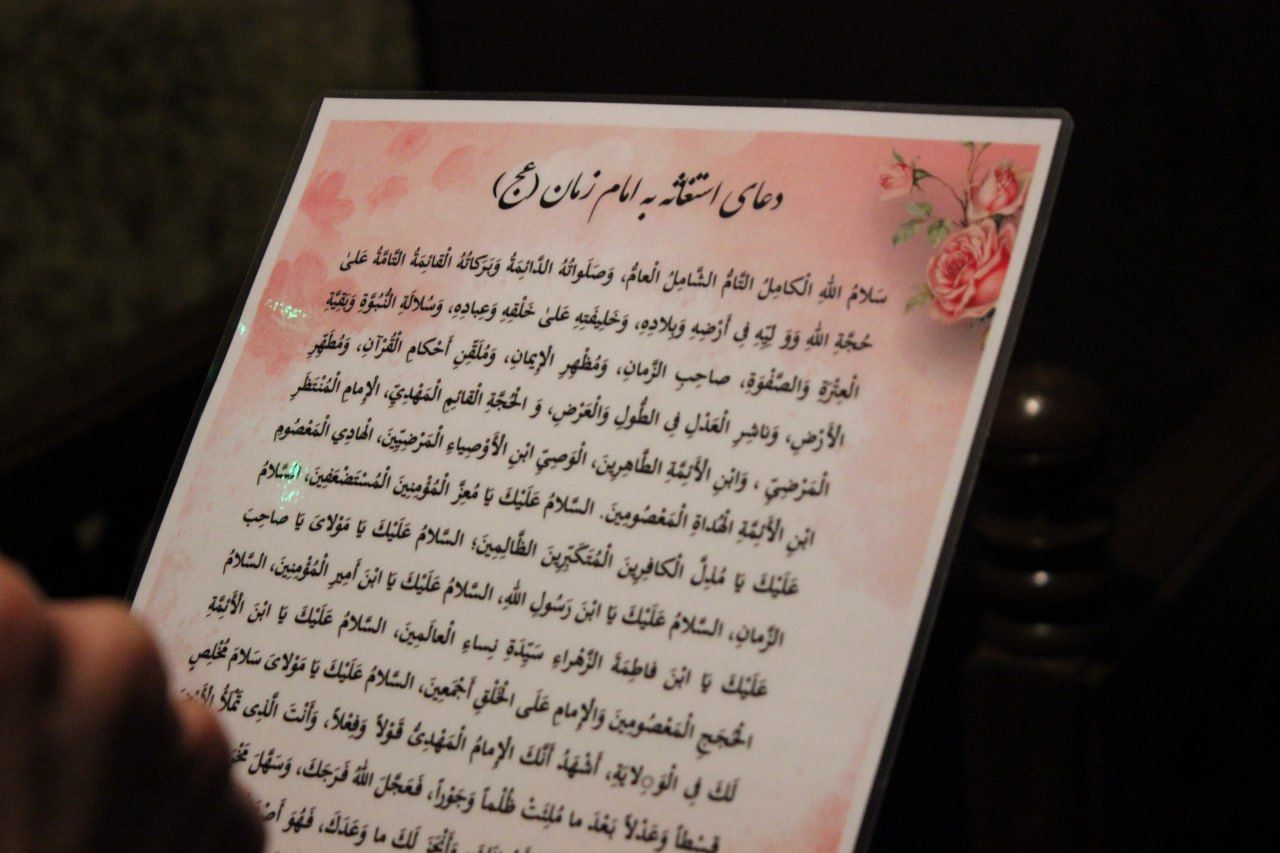 دعای استغاثه به امام زمان (عج)
سَلامُ اللهِ الْکامِلُ التَّامُّ الشَّامِلُ الْعامُّ، وَصَلَواتُهُ الدَّائِمَةُ وَبَرَکاتُهُ الْقائِمَةُ التَّامَّةُ عَلیٰ
حُجَّةِ اللهِ وَوَ لِیِّهِ فِی أَرْضِهِ وَبِلادِهِ، وَخَلِیفَتِهِ عَلیٰ خَلْقِهِ وَعِبادِهِ، وَسُلالَةِ النُّبُوَّةِ وَبَقِیَّةِ
الْعِتْرَةِ وَالصَّفْوَةِ، صاحِبِ الزَّمانِ، وَمُظْهِرِ الْإِیمانِ، وَمُلَقِّنِ أَحْکامِ الْقُرْآنِ، وَمُطَهِّرِ
الْأَرْضِ، وَناشِرِ الْعَدْلِ فِی الطُّولِ وَالْعَرْضِ، وَ الْحُجَّةِ الْقائِمِ الْمَهْدِیِّ، الْإِمامِ الْمُنْتَظَرِ
الْمَرْضِیِّ ، وَابْنِ الْأَئِمَّةِ الطَّاهِرِینَ، الْوَصِیِّ ابْنِ الْأَوْصِیاءِ الْمَرْضِیِّینَ، الْهادِی الْمَعْصُومِ
ابْنِ الْأَئِمَّةِ الْهُداةِ الْمَعْصُومِینَ. السَّلامُ عَلَیْکَ یَا مُعِزَّ الْمُؤْمِنِینَ الْمُسْتَضْعَفِینَ، السَّلامُ
عَلَیْکَ یَا مُذِلَّ الْکافِرِینَ الْمُتَکَبِّرِینَ الظَّالِمِینَ؛ السَّلامُ عَلَیْکَ یَا مَوْلایَ یَا صاحِبَ
الزَّمانِ، السَّلامُ عَلَیْکَ یَا ابْنَ رَسُولِ اللهِ، السَّلامُ عَلَیْکَ یَا ابْنَ أَمِیرِ الْمُؤْمِنِینَ، السَّلامُ
عَلَیْکَ یَا ابْنَ فاطِمَةَ الزَّهْراءِ سَیِّدَةِ نِساءِ الْعالَمِینَ، السَّلامُ عَلَیْکَ یَا ابْنَ الْأَئِمَّةِ
الْحُجَجِ الْمَعْصُومِینَ وَالْإِمامِ عَلَی الْخَلْقِ أَجْمَعِینَ، السَّلامُ عَلَیْکَ یَا مَوْلایَ سَلامَ مُخْلِصٍ
لَکَ فِی الْوَِلایَةِ، أَشْهَدُ أَنَّکَ الْإِمامُ الْمَهْدِیُّ قَوْلاً وَفِعْلاً، وَأَنْتَ الَّذِی تَمْلَأُ الْأَرْضَ
قِسْطاً وَعَدْلاً بَعْدَ ما مُلِئَتْ ظُلْماً وَجَوْراً، فَعَجَّلَ اللهُ فَرَجَکَ، وَسَهَّلَ
وَأَنْجَزَ لَکَ ما وَعَدَکَ، فَهُوَ